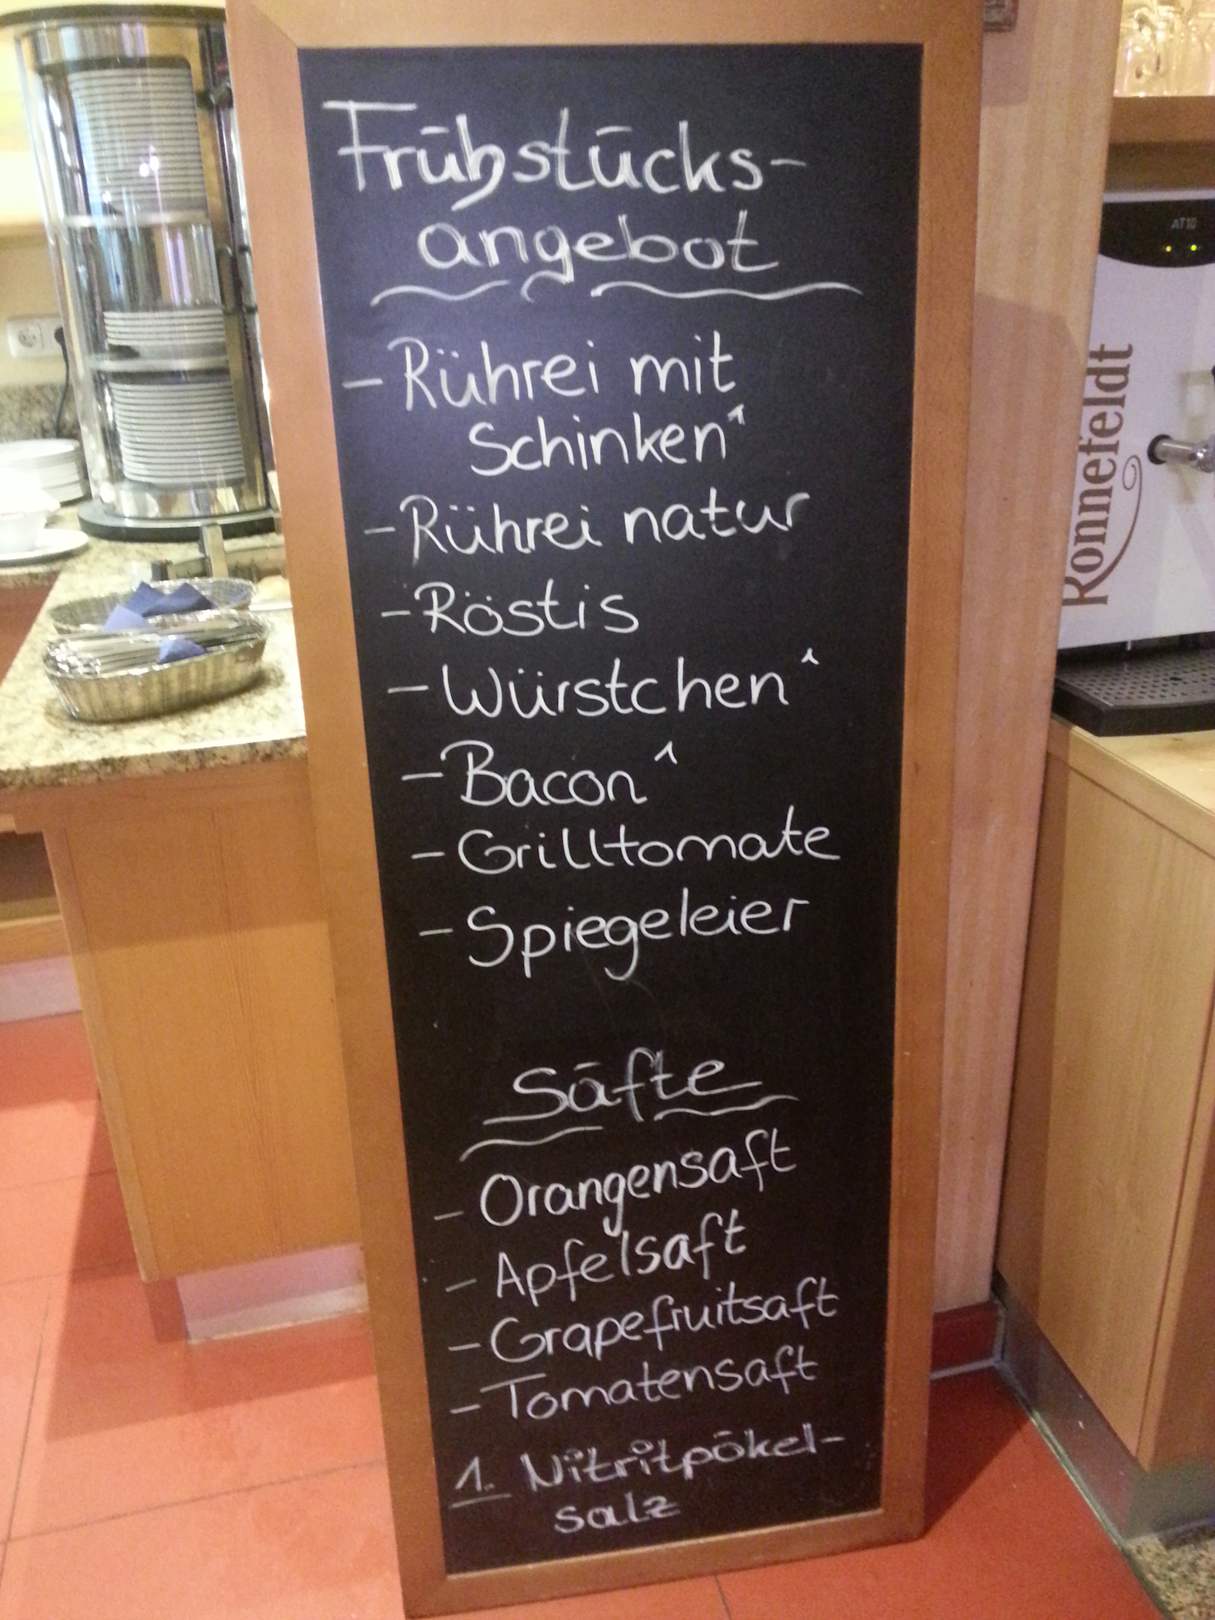 Frühstücks-
angebot
- Rührei mit
Schinken¹
- Rührei natur
- Röstis
- Würstchen¹
- Bacon¹
- Grilltomate
- Spiegeleier
Säfte
- Orangensaft
- Apfelsaft
- Grapefruitsaft
- Tomatensaft
1. Nitritpökel-
salz
AT10
Ronnefeldt